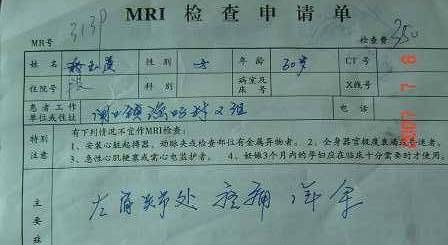 MRI 检查申请单
MR号 313P 检查费 350
姓名 性别 女 年龄 30岁 CT号
住院号 科别 病室及床号 X线号
患者工作单位或住址 组 电话
特别注意 有下列情况不宜作MRI检查：
1、安装心脏起搏器、动脉夹或检查部位有金属异物者。 2、全身器官极度衰竭或昏迷者。
3、急性心肌梗塞或需心电监护者。 4、妊娠3个月内的孕妇应在临床十分需要时才使用。
左 关节处 疼痛 年余
主要症
2007 7 8